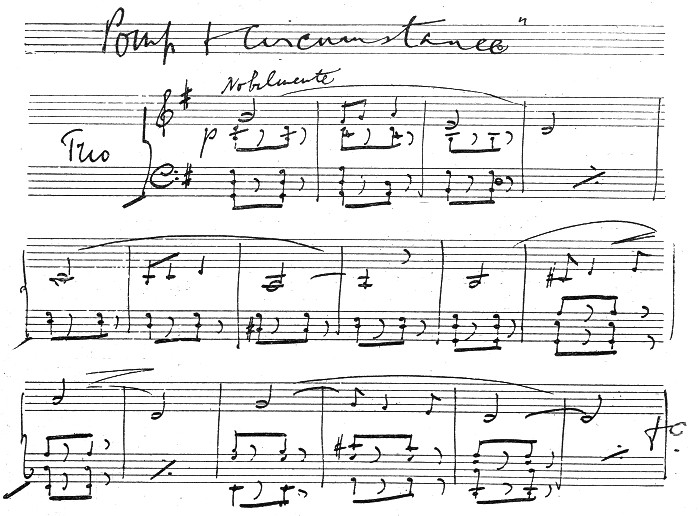 Pomp & Circumstance"
Nobilmente
p
Trio